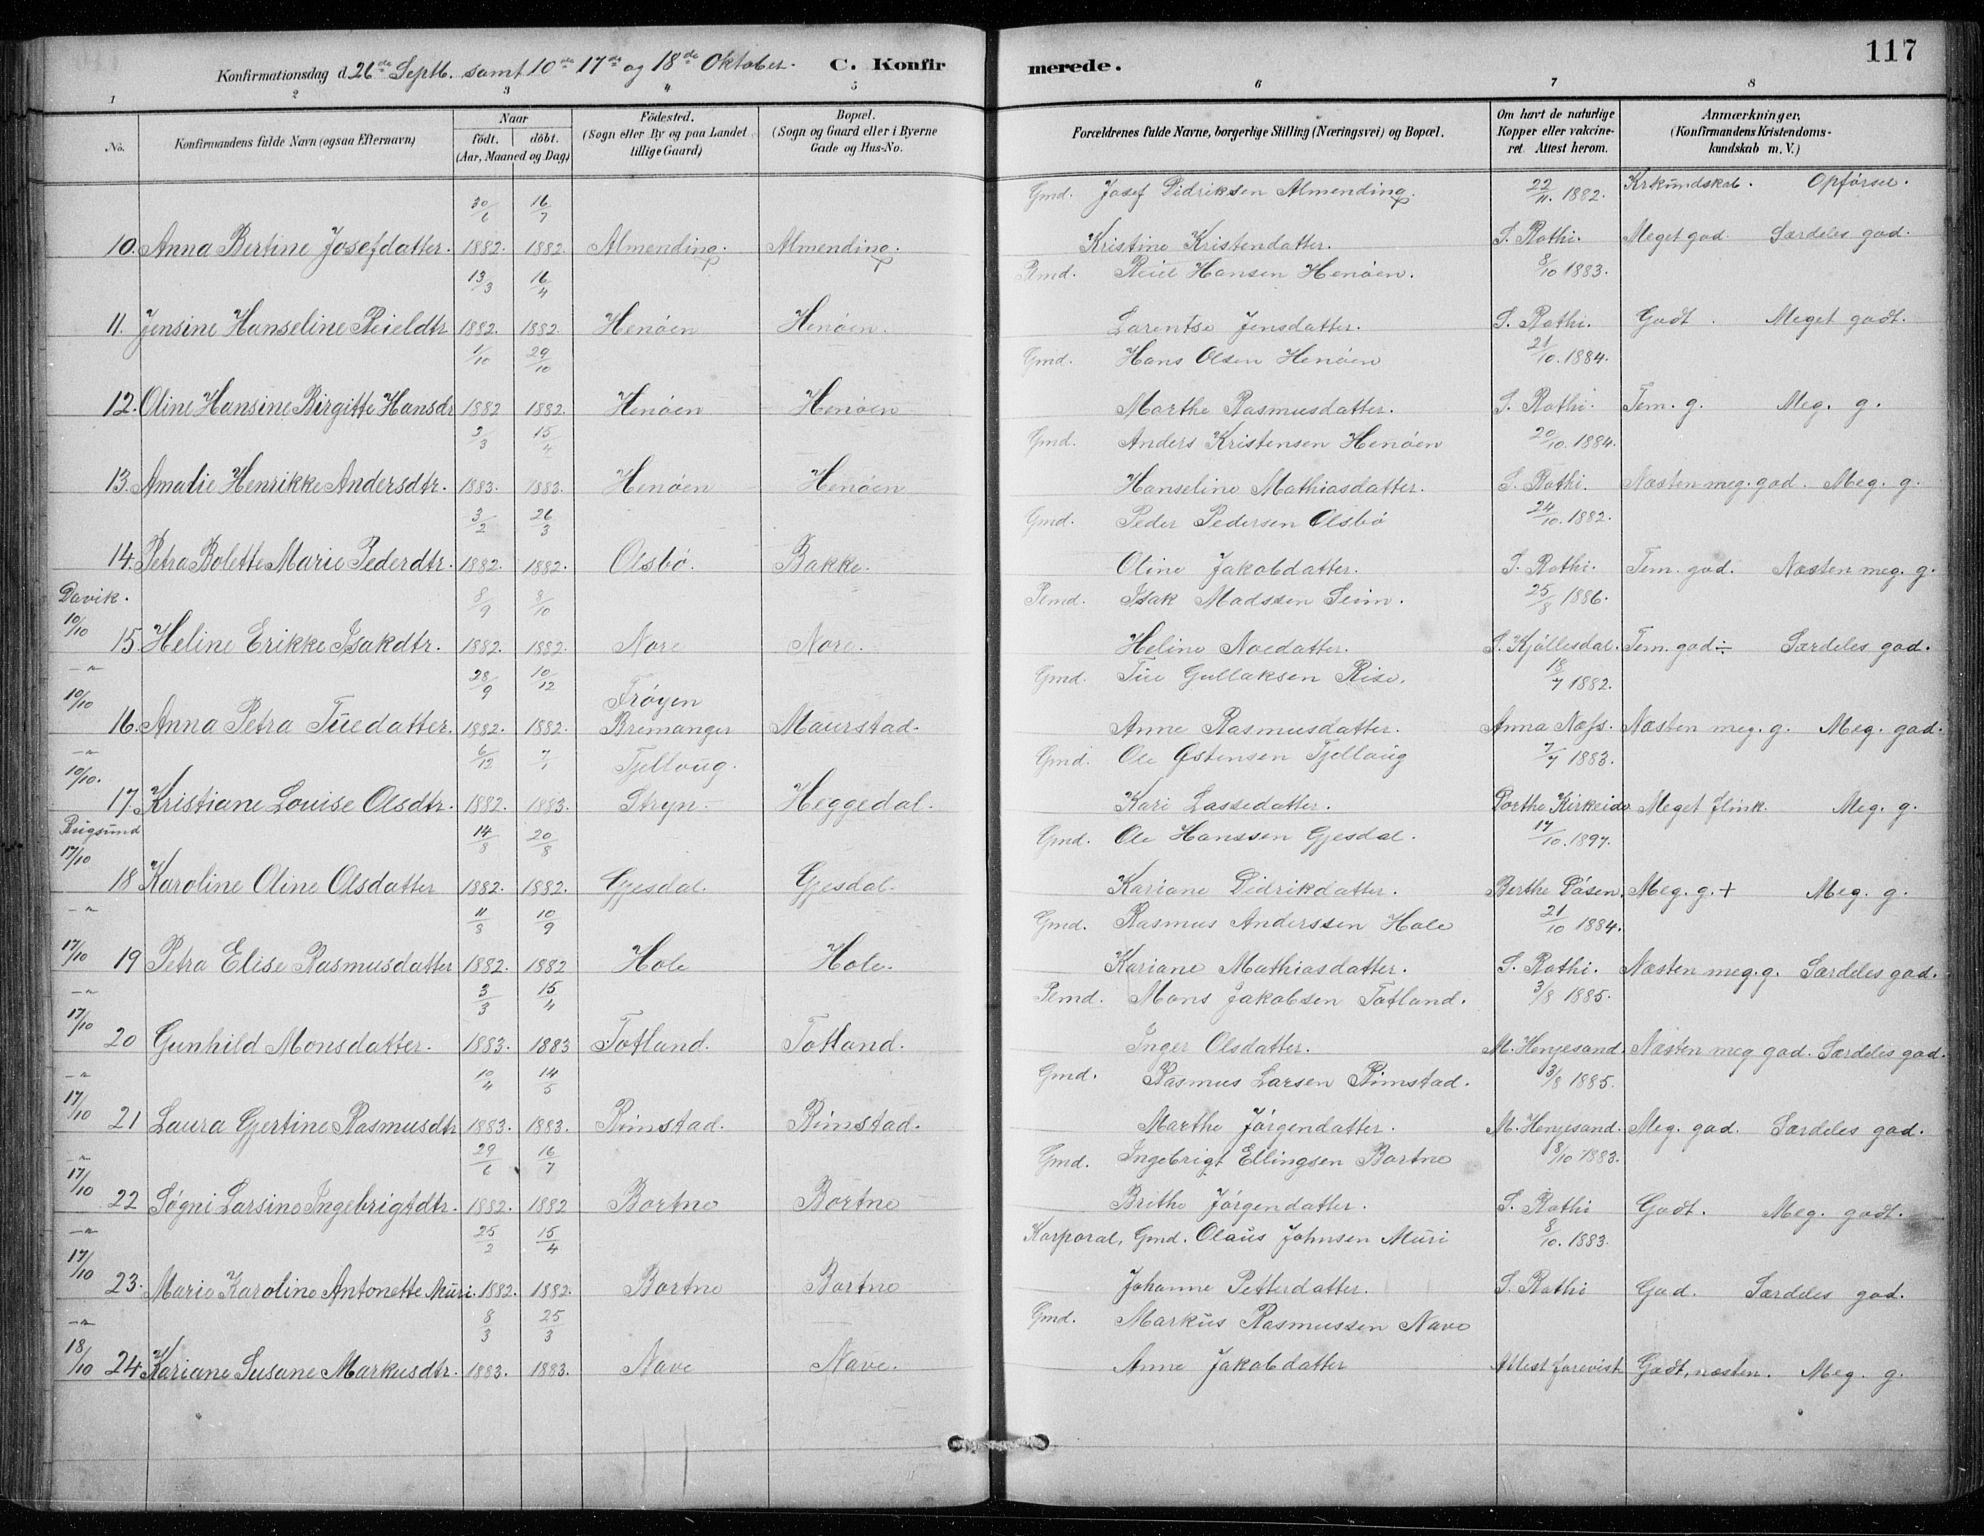 117
Konfirmationsdag d. 26de Septb. samt 10de 17de og 18de Oktober. C. Konfirmerede.
1 2 3 4 5 6 7 8
No. Konfirmandens fulde Navn (ogsaa Efternavn) Naar født. døbt. (Aar, Maaned og Dag) Fødested. (Sogn eller By og paa Landet tillige Gaard) Bopæl. (Sogn og Gaard eller i Byerne Gade og Hus-No. Forældrenes fulde Navne, borgerlige Stilling (Næringsvei) og Bopæl. Om havt de naturlige Kopper eller vakcineret. Attest herom. Anmærkninger, (Konfirmandens Kristendomskundskab m. V.)
30/6 16/7 Gmd. Josef Didriksen Almending. 22/11. 1882. Krkundskab. Opførsel.
10. Anna Bertine Josefdatter. 1882. 1882. Almending. Almending. Kristine Kristendatter. S. Rothi. Meget god. Særdeles god.
13/3 16/4 Pmd. Reiel Hansen Henøen. 8/10 1883.
11. Jensine Hanseline Reieldtr. 1882. 1882. Henøen Henøen. Larentse Jensdatter. S. Rothi. Godt. Meget godt.
1/10 29/10 Gmd. Hans Olsen Henøen 21/10. 1884.
12. Oline Hansine Birgitte Hansdr 1882 1882. Henøen Henøen Marthe Rasmusdatter. S. Rothi. Tem. g. Meg. g.
3/3 15/4 Gmd. Anders Kristensen Henøen 20/10. 1884.
13. Amalie Henrikke Andersdtr. 1883. 1883. Henøen Henøen Hanseline Mathiasdatter. S. Rothi. Næsten meg. god. Meg. g.
3/2 26/3 Gmd. Peder Pedersen Olsbø 24/10. 1882.
14. Petra Bolette Marie Pederdtr. 1882. 1882. Olsbø. Bakke. Oline Jakobdatter. S. Rothi. Tem. god. Næsten meg. g.
Davik. 8/9 8/10 Pmd. Isak Madssen Seim. 25/8 1886.
10/10 15. Heline Erikke Isakdtr. 1882. 1882. Nore Nore. Heline Noedatter. S. Kjøllesdal. Tem. god ÷ Særdeles god.
-"- 28/9 10/12 Frøyen Gmd. Tue Gullaksen Rise. 18/7 1882.
10/10 16. Anna Petra Tuedatter. 1882. 1882. Bremanger Maurstad. Anne Rasmusdatter. Anna Næss. Næsten meg. g. Meg. god.
-"- 6/12 7/1 Tjellaug. Gmd. Ole Østensen Tjellaug 7/7 1883.
10/10. 17. Kristiane Louise Olsdtr. 1882. 1883. Stryn. Heggedal. Kari Lassedatter. Dorthe Kirkeide Meget flink. Meg. g.
Rugsund 14/8 20/8 Gmd. Ole Hanssen Gjesdal. 17/10. 1897.
17/10 18 Karoline Oline Olsdatter 1882. 1882. Gjesdal. Gjesdal. Kariane Didrikdatter. Berthe Løsen. Meg. g. + Meg. g.
-"- 11/8 10/9 Gmd. Rasmus Anderssen Hole 21/10 1884.
17/10 19 Petra Elise Rasmusdatter 1882. 1882 Hole Hole. Kariane Mathiasdatter. S. Rothi. Næsten meg. g. Særdeles god.
-"- 3/3 15/4 Pmd. Mons Jakobsen Totland. 3/8 1885.
17/10 20 Gunhild Monsdatter. 1883. 1883 Totland. Totland. Inger Olsdatter. M. Henjesand. Næsten meg god. Særdeles god.
-"- 10/4 14/5 Gmd. Rasmus Larsen Rimstad. 3/8 1885.
17/10 21 Laura Gjertine Rasmusdtr 1883. 1883. Rimstad. Rimstad. Marthe Jørgendatter. M. Henjesand. Meg. god. Særdeles god.
-"- 29/6 16/7 Gmd. Ingebrigt Ellingsen Bortne 8/10 1883.
17/10 22 Søgni Larsine Ingebrigtdtr. 1882. 1882 Bortne Bortne Brithe Jørgendatter. S. Rothi Godt. Meg. godt.
-"- 25/2 15/4 Korporal, Gmd. Olaus Johnsen Muri 8/10. 1883.
17/10 23. Marie Karoline Antonette Muri. 1882. 1882. Bortne Bortne Johanne Petterdatter. S. Rothi God. Særdeles god.
-"- 8/3 25/3 Gmd. Markus Rasmussen Nave
18/10 24. Kariane Susane Markusdtr. 1883. 1883. Nave Nave. Anne Jakobdatter Attest forevist Godt, næsten. Meg. g.